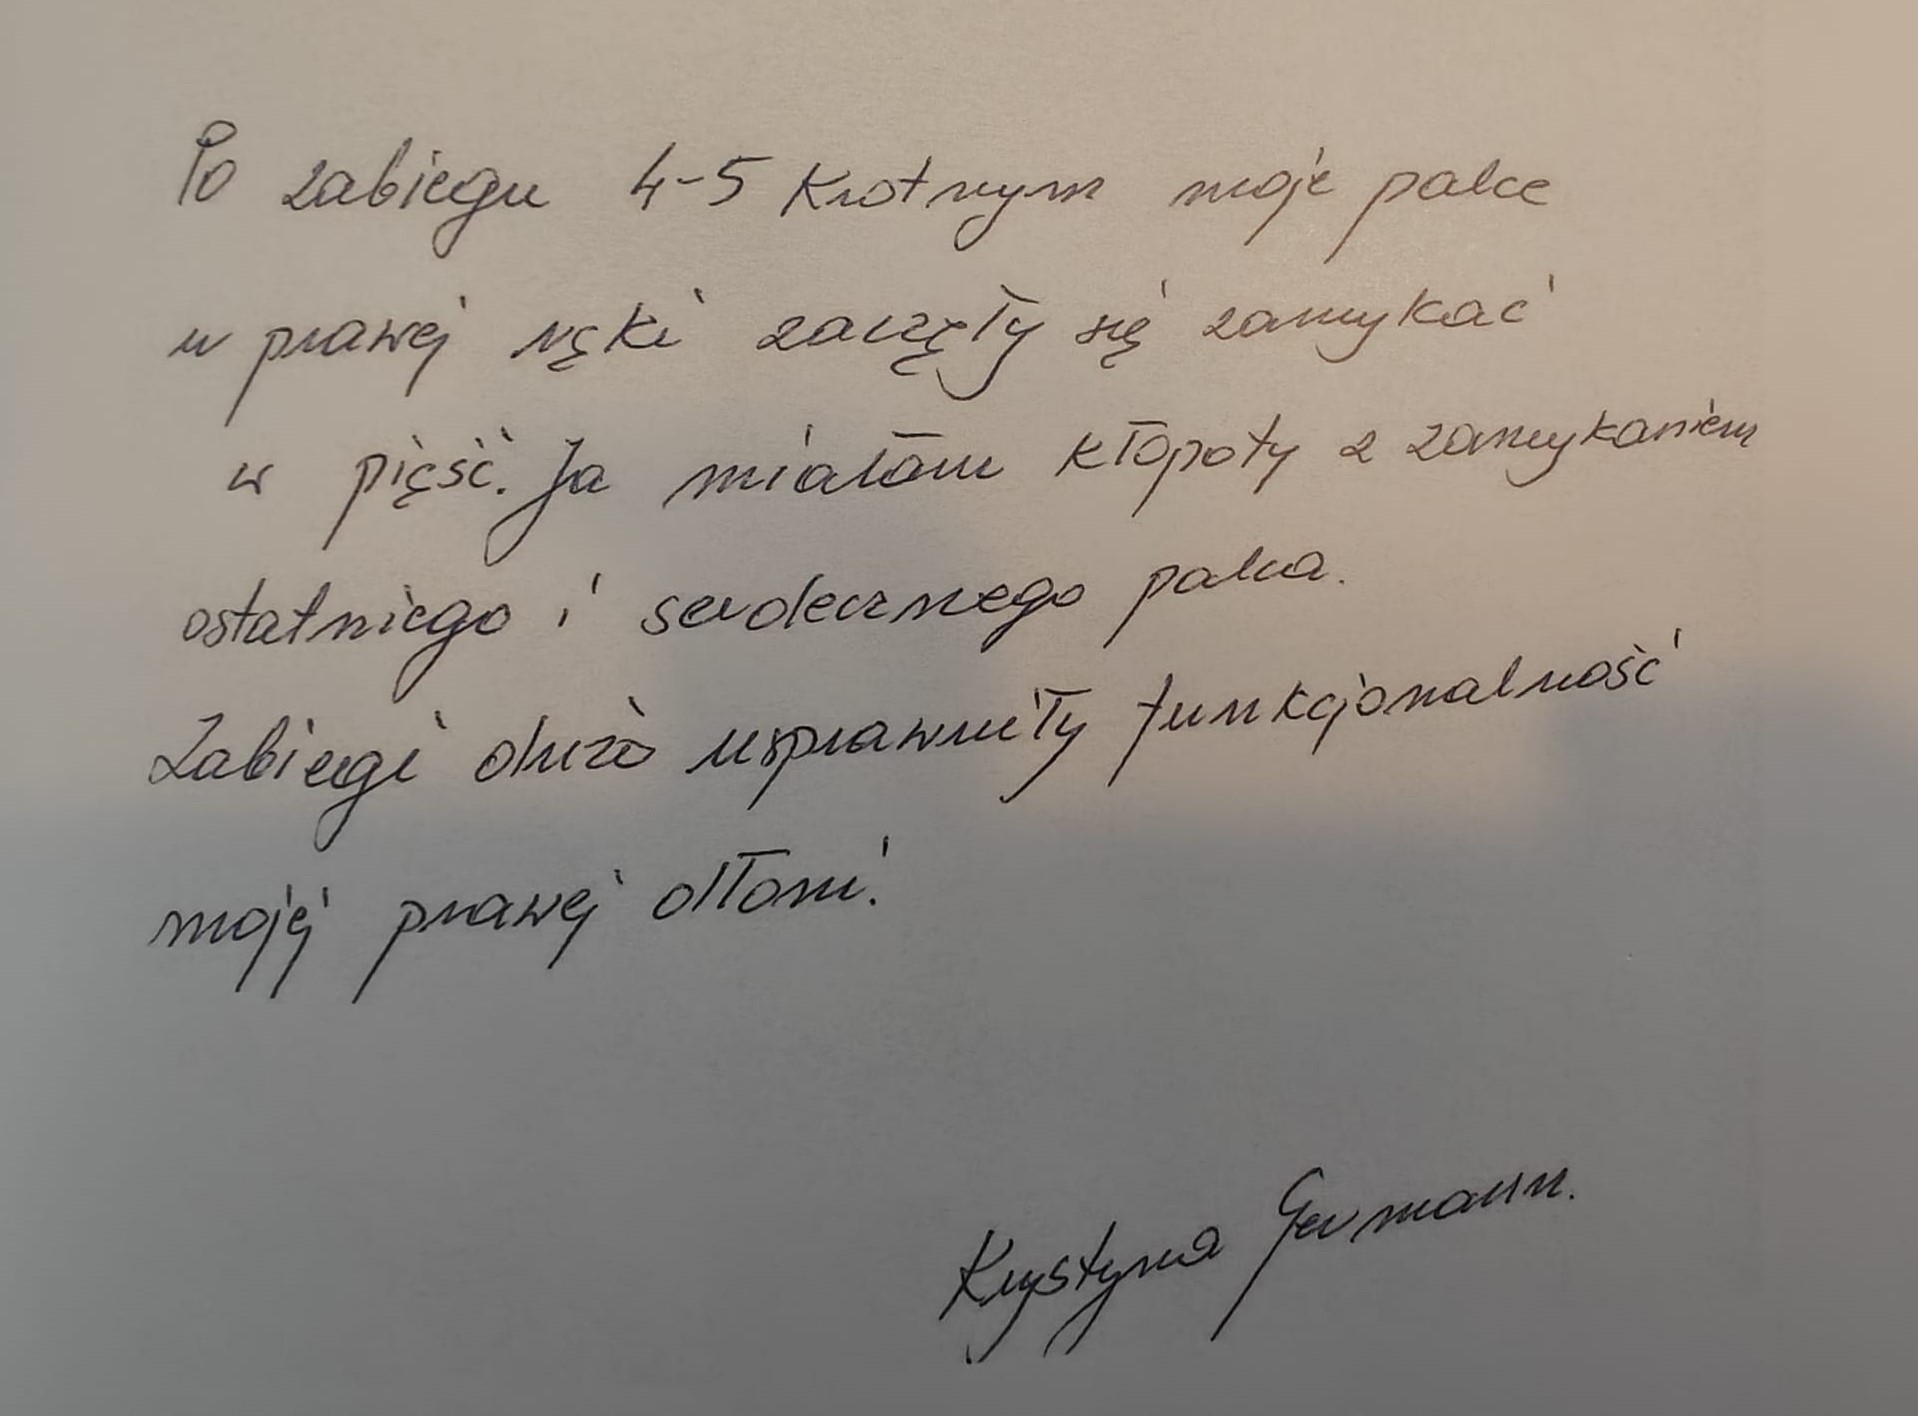 Po zabiegu 4-5 krotnym moje palce
w prawej ręki zaczęły się zamykać
w pięść. Ja miałam kłopoty z zamykaniem
ostatniego i serdecznego palca.
Zabiegi dużo usprawniły funkcjonalność
mojej prawej dłoni.
Krystyna Germann.